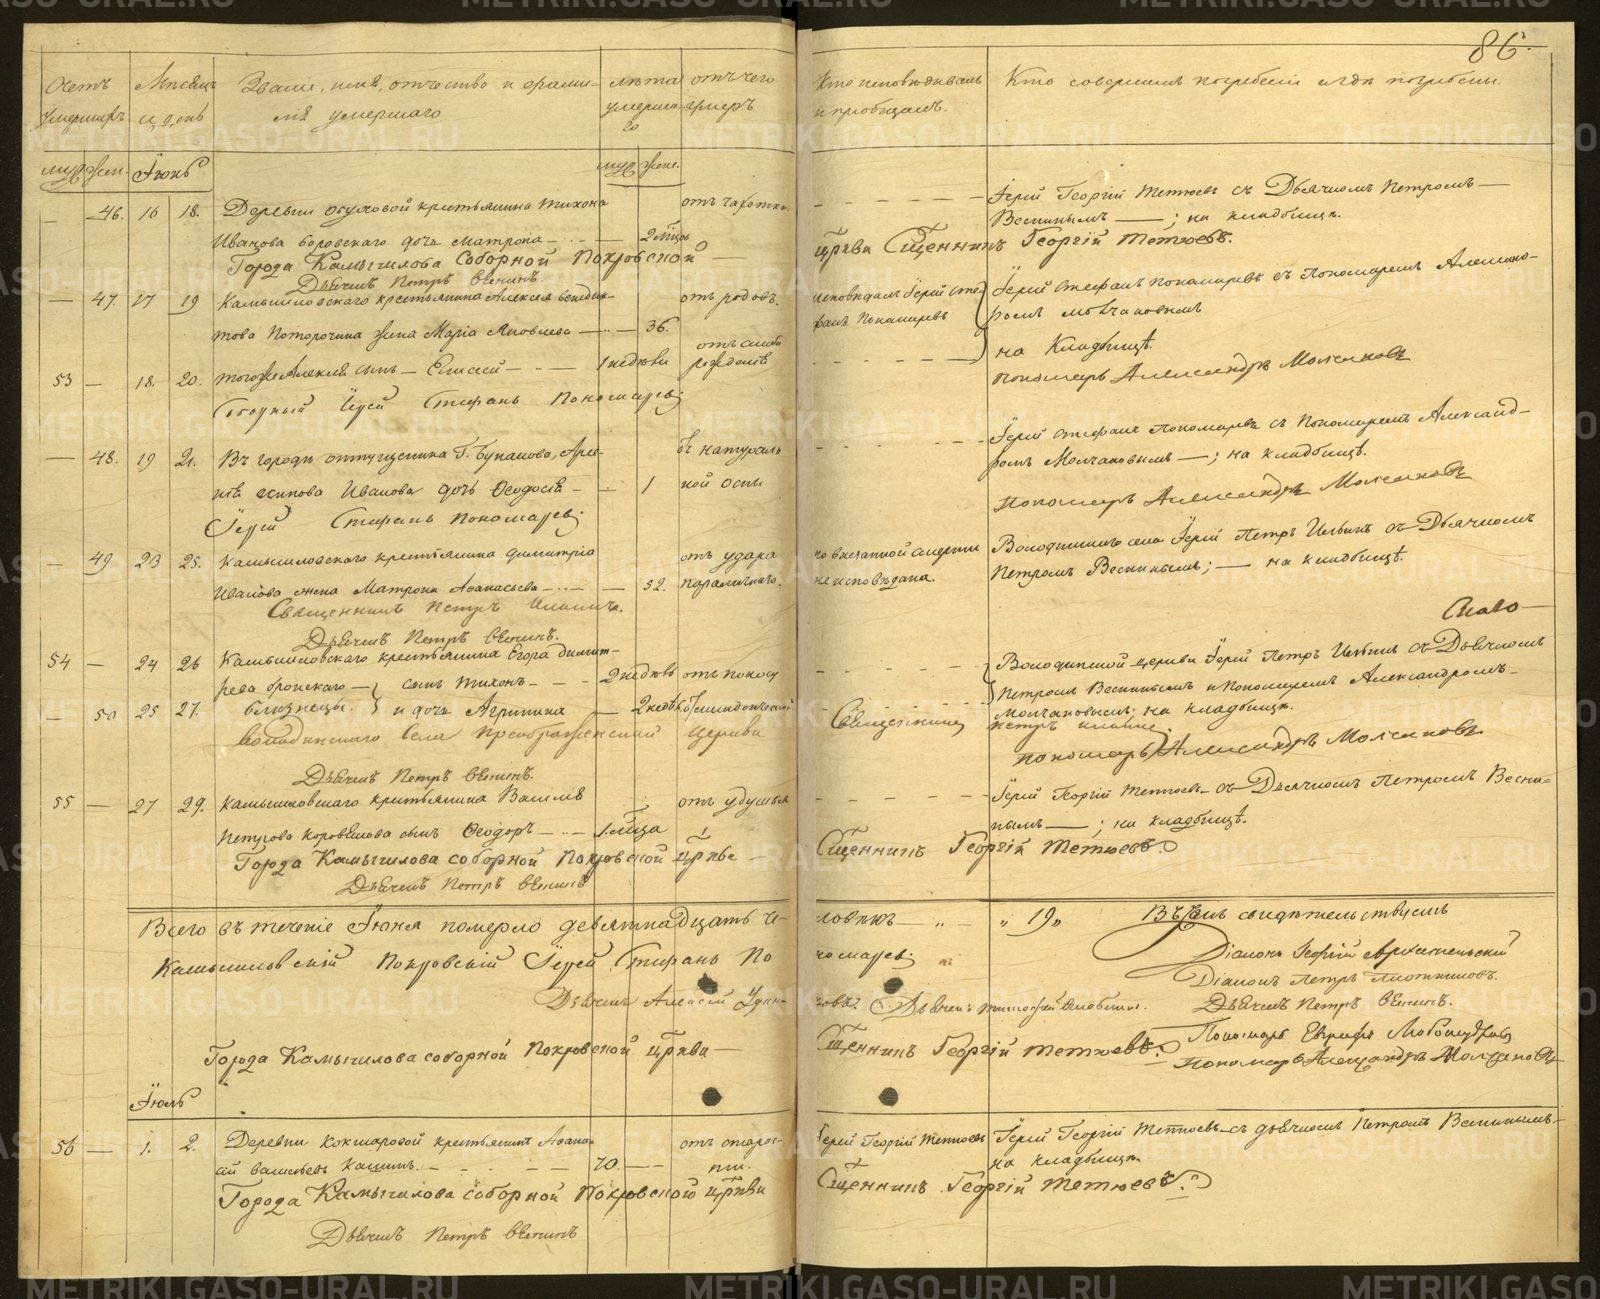 86.
Счетъ умершихъ
Мѣсяцъ и день
Званіе, имя, отчество и фами-
лія умершаго
лѣта умершаго
отъ чего умеръ
Кто исповѣдывалъ
и пріобщалъ.
Кто совершалъ погребеніе и гдѣ погребены.
муж. жен. Іюнь муж. жен.
— 46. 16 18. Деревни крестьянина Тихона отъ чахотки. Іерей Георгій Тетюевъ съ Дьячкомъ Петромъ
Иванова Боровскаго дочь Матрона — 2 мѣсц Веснинымъ —; на кладбищѣ.
Города Камышлова Соборной Покровской церкви Сщенникъ Георгій Тетюевъ.
Дьячекъ Петръ Веснинъ.
— 47. 17 19 Камышловскаго крестьянина Алексѣя Венедик- отъ родовъ. исповѣдалъ Іерей Сте- Іерей Стефанъ Пономаревъ съ Пономаремъ Александ-
това Поторочина жена Марія Яковлева — 36. фанъ Пономаревъ ромъ Молчановымъ
на Кладбищѣ.
53 — 18. 20. тогоже Алексѣя сынъ — Елисей — 1 недѣли отъ слабо рожденія
Пономарь Александръ Молчановъ
Соборный Іерей Стефанъ Пономаревъ
— 48. 19 21. Въ городѣ отпущенника Г. Буланова, отъ натураль- Іерей Стефанъ Пономаревъ съ Пономаремъ Александ-
Осипова Иванова дочь Ѳеодосія — 1 ной оспы ромъ Молчановымъ —; на кладбищѣ.
Пономарь Александръ Молчановъ
Іерей Стефанъ Пономаревъ
— 49 23 25. Камышловскаго крестьянина Димитрія отъ удара по внезапной смерти Володинскаго села Іерей Петръ Ильинъ съ Дьячкомъ
Иванова жена Матрона Аѳанасьева — 52. параличнаго. не исповѣдана. Петромъ Веснинымъ; — на кладбищѣ.
Священникъ Петръ Ильинъ.
Дьячекъ Петръ Веснинъ.
54 — 24 26 Камышловскаго крестьянина Егора Димит- Володинской церкви Іерей Петръ Ильинъ съ Дьячкомъ
рева Бронскаго — сынъ Тихонъ — 2 недѣль отъ поносу Петромъ Веснинымъ и Пономаремъ Александромъ
— 50 25 27. близнецы. и дочь Агрипина — 2 недѣль Молчановымъ; на кладбищѣ.
Володинскаго Села Преображенской Церкви Священникъ Петръ Ильинъ
Пономарь Александръ Молчановъ
Дьячекъ Петръ Веснинъ.
55 — 27 29. Камышловскаго крестьянина Василія отъ удушья Іерей Георгій Тетюевъ съ Дьячкомъ Петромъ Весни-
Петрова Коровякова сынъ Ѳеодоръ — 1 мца нымъ —; на кладбищѣ.
Города Камышлова соборной Покровской цркви — Сщенникъ Георгій Тетюевъ.
Дьячекъ Петръ Веснинъ
Всего въ теченіе Іюня померло девятнадцать че- ловѣкъ — „ 19 „ Въ чемъ свидѣтельствуемъ
Камышловскій Покровскій Іерей Стефанъ По номаревъ. Діаконъ Георгій Архангельскій
Діаконъ Петръ Плотниковъ.
Дьячекъ Алексѣй Дьячекъ Дьячекъ Петръ Веснинъ.
Города Камышлова соборной Покровской цркви — Сщенникъ Георгій Тетюевъ. Пономарь Евграфъ
Пономарь Александръ Молчановъ
Іюль
56 — 1. 2. Деревни Кокшаровой крестьянинъ Аѳана- отъ старос- Іерей Георгій Тетюевъ Іерей Георгій Тетюевъ съ дьячкомъ Петромъ Веснинымъ
сій Васильевъ Кашинъ. — 70. — ти. на кладбищѣ.
Города Камышлова соборной Покровской цркви Сщенникъ Георгій Тетюевъ.
Дьячекъ Петръ Веснинъ
METRIKI.GASO-URAL.RU